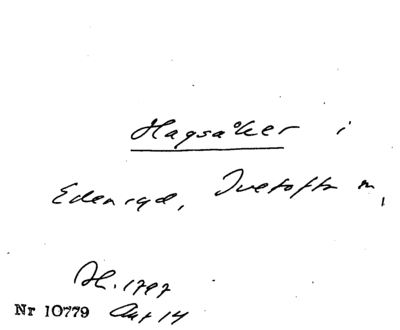 Hagsåker i
Edenryd, Ivetofta sn,
Sk. 1797
Nr 10779 Akt 14